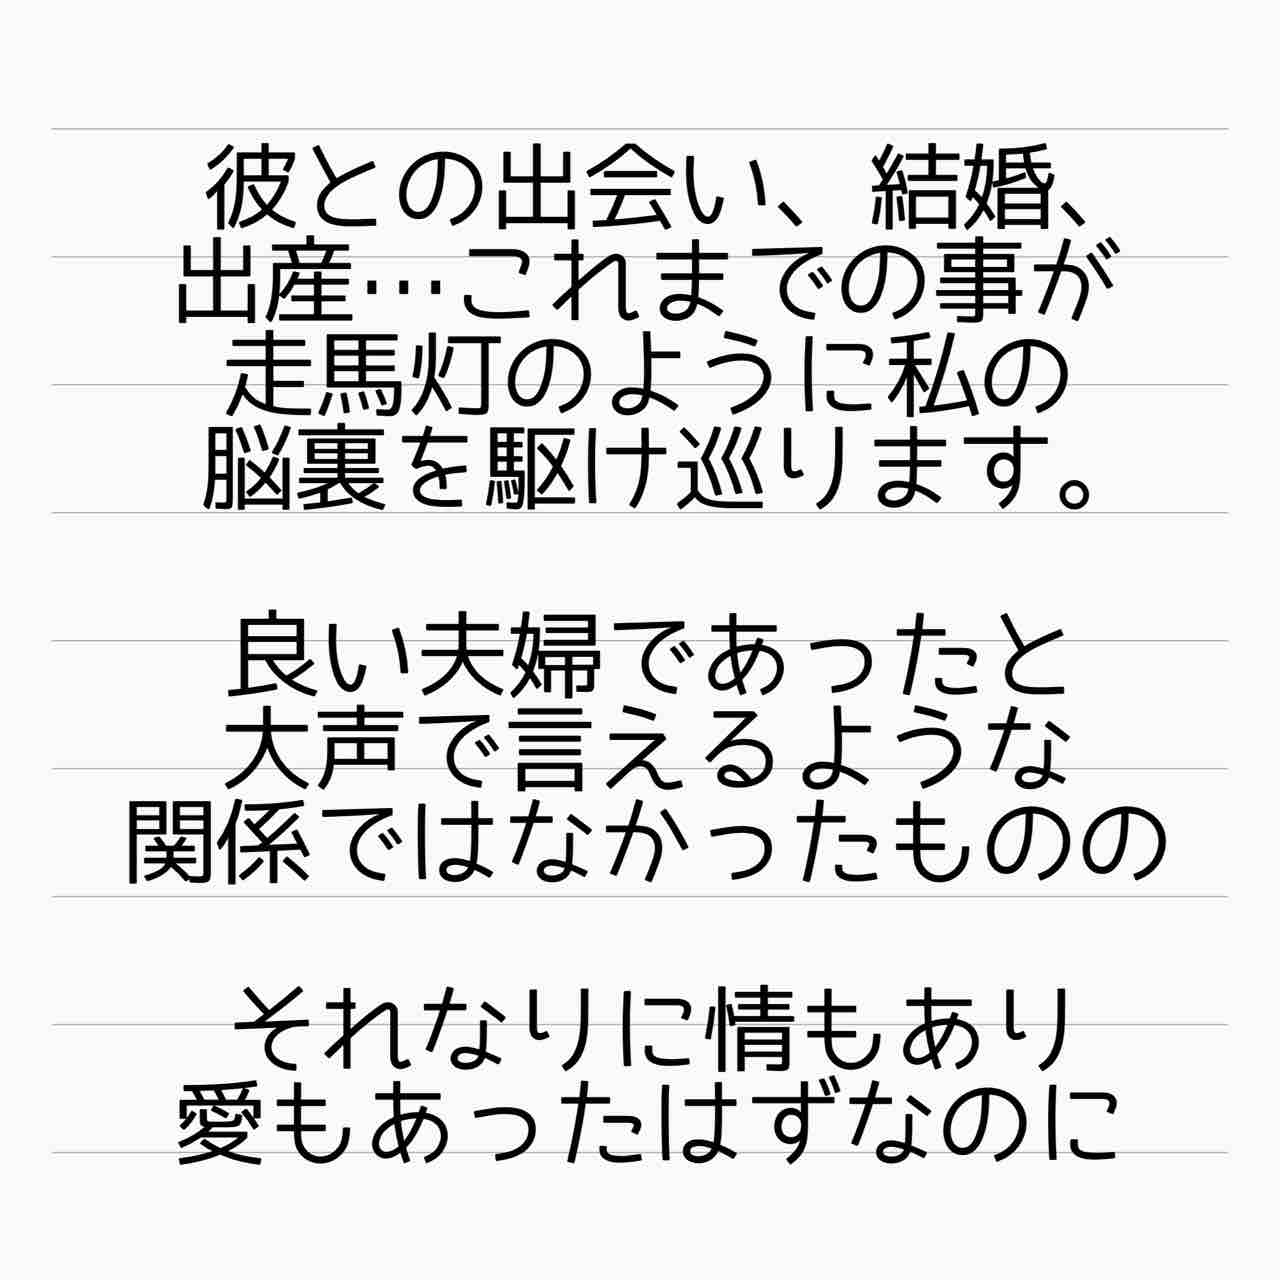 彼との出会い、結婚、
出産…これまでの事が
走馬灯のように私の
脳裏を駆け巡ります。
良い夫婦であったと
大声で言えるような
関係ではなかったものの
それなりに情もあり
愛もあったはずなのに